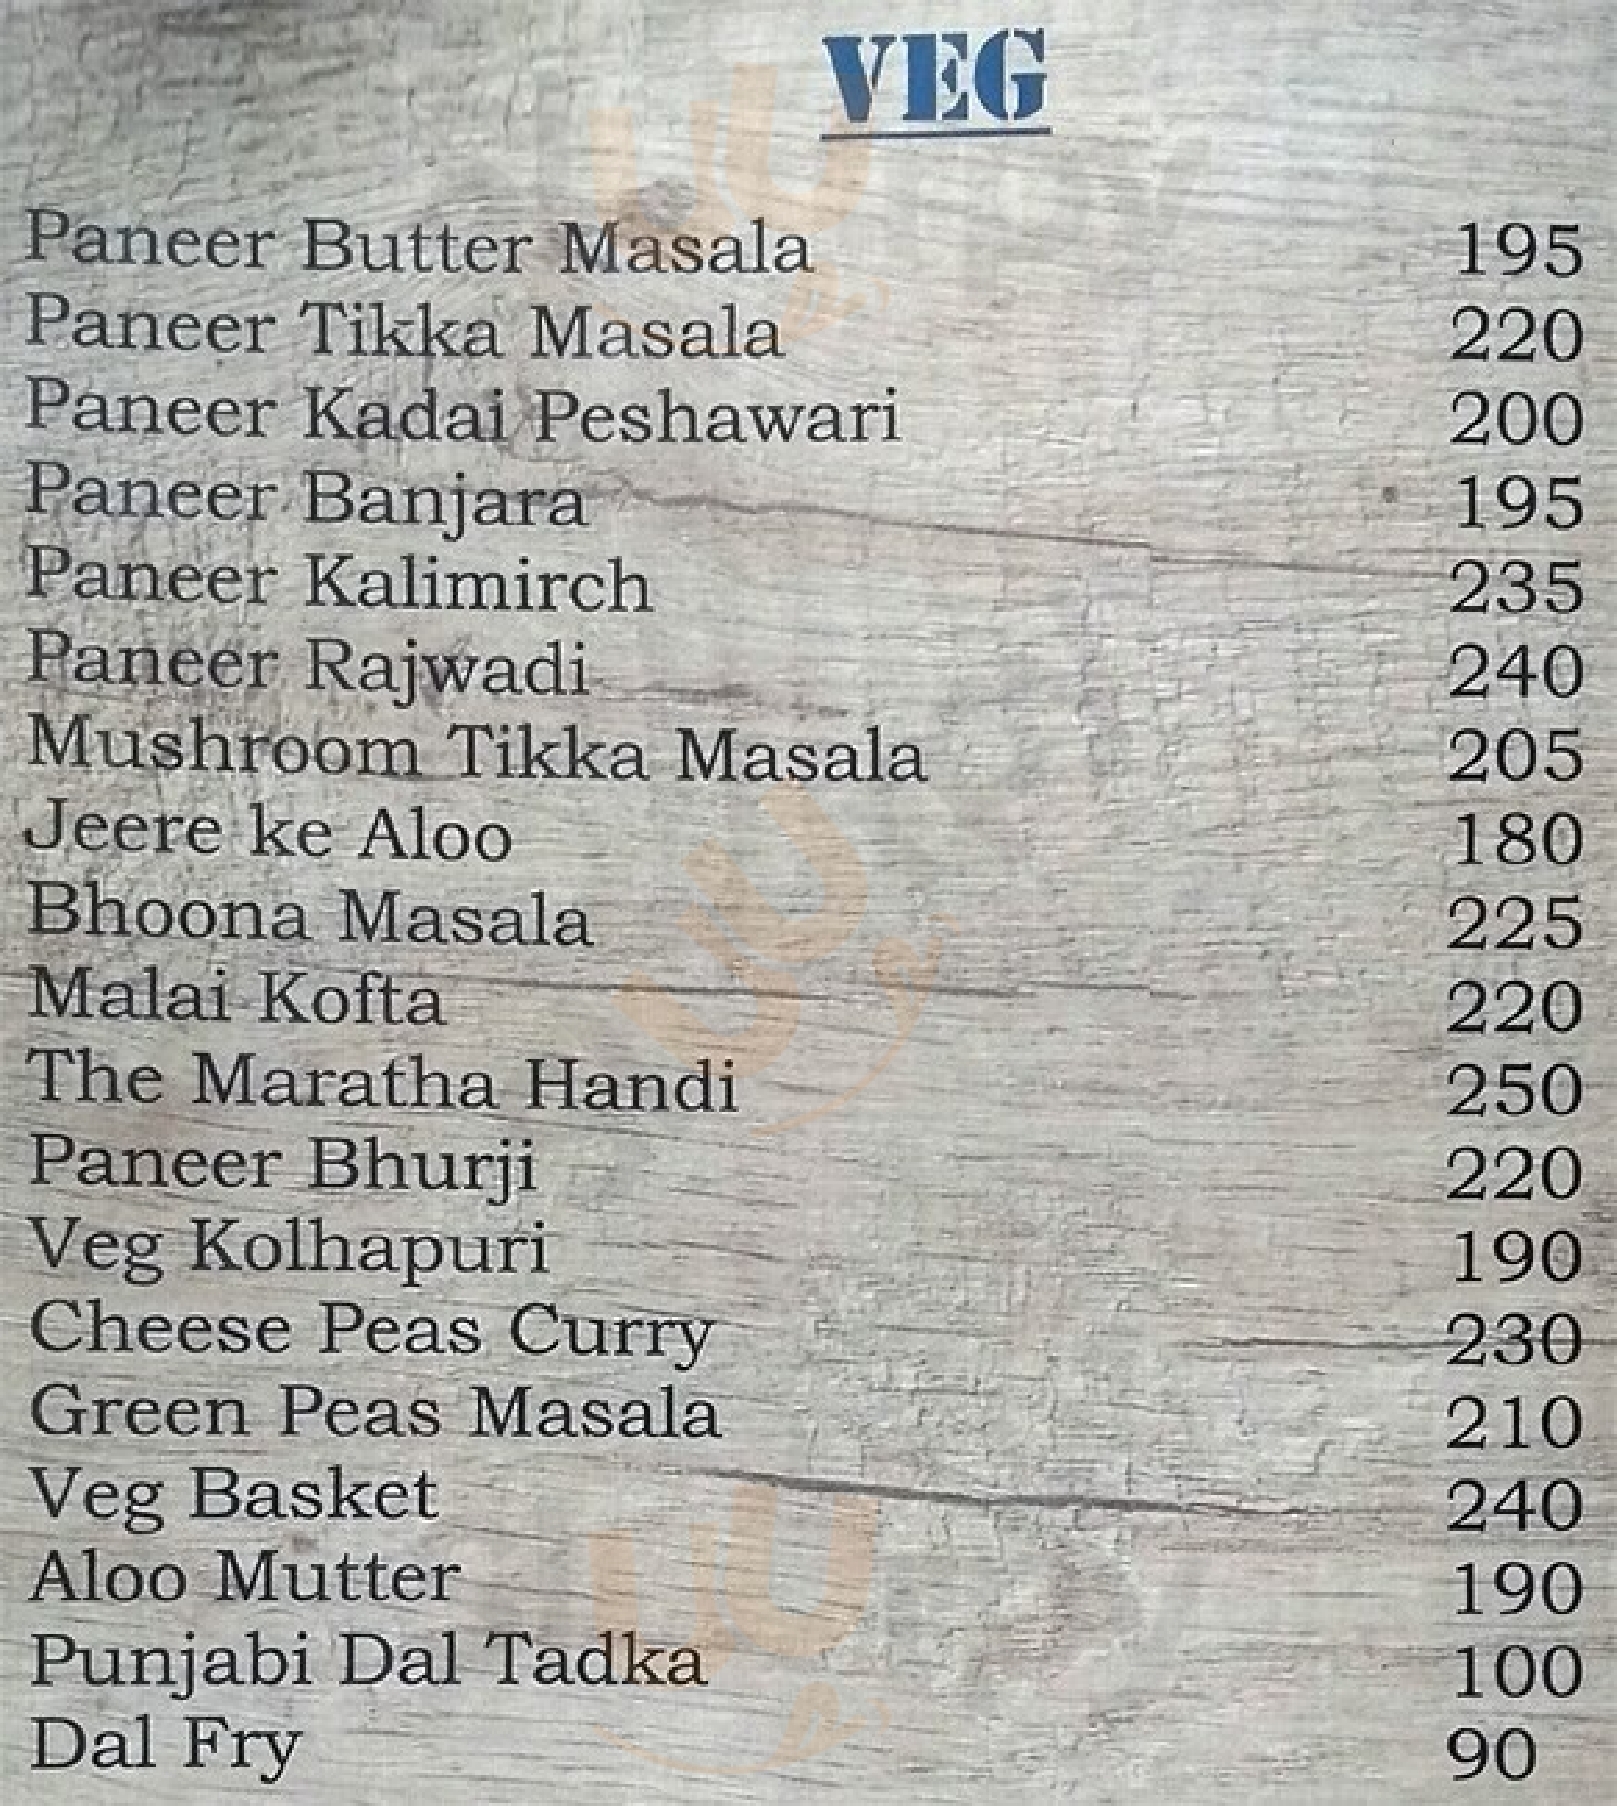 VEG
Paneer Butter Masala 195
Paneer Tikka Masala 220
Paneer Kadai Peshawari 200
Paneer Banjara 195
Paneer Kalimirch 235
Paneer Rajwadi 240
Mushroom Tikka Masala 205
Jeere ke Aloo 180
Bhoona Masala 225
Malai Kofta 220
The Maratha Handi 250
Paneer Bhurji 220
Veg Kolhapuri 190
Cheese Peas Curry 230
Green Peas Masala 210
Veg Basket 240
Aloo Mutter 190
Punjabi Dal Tadka 100
Dal Fry 90